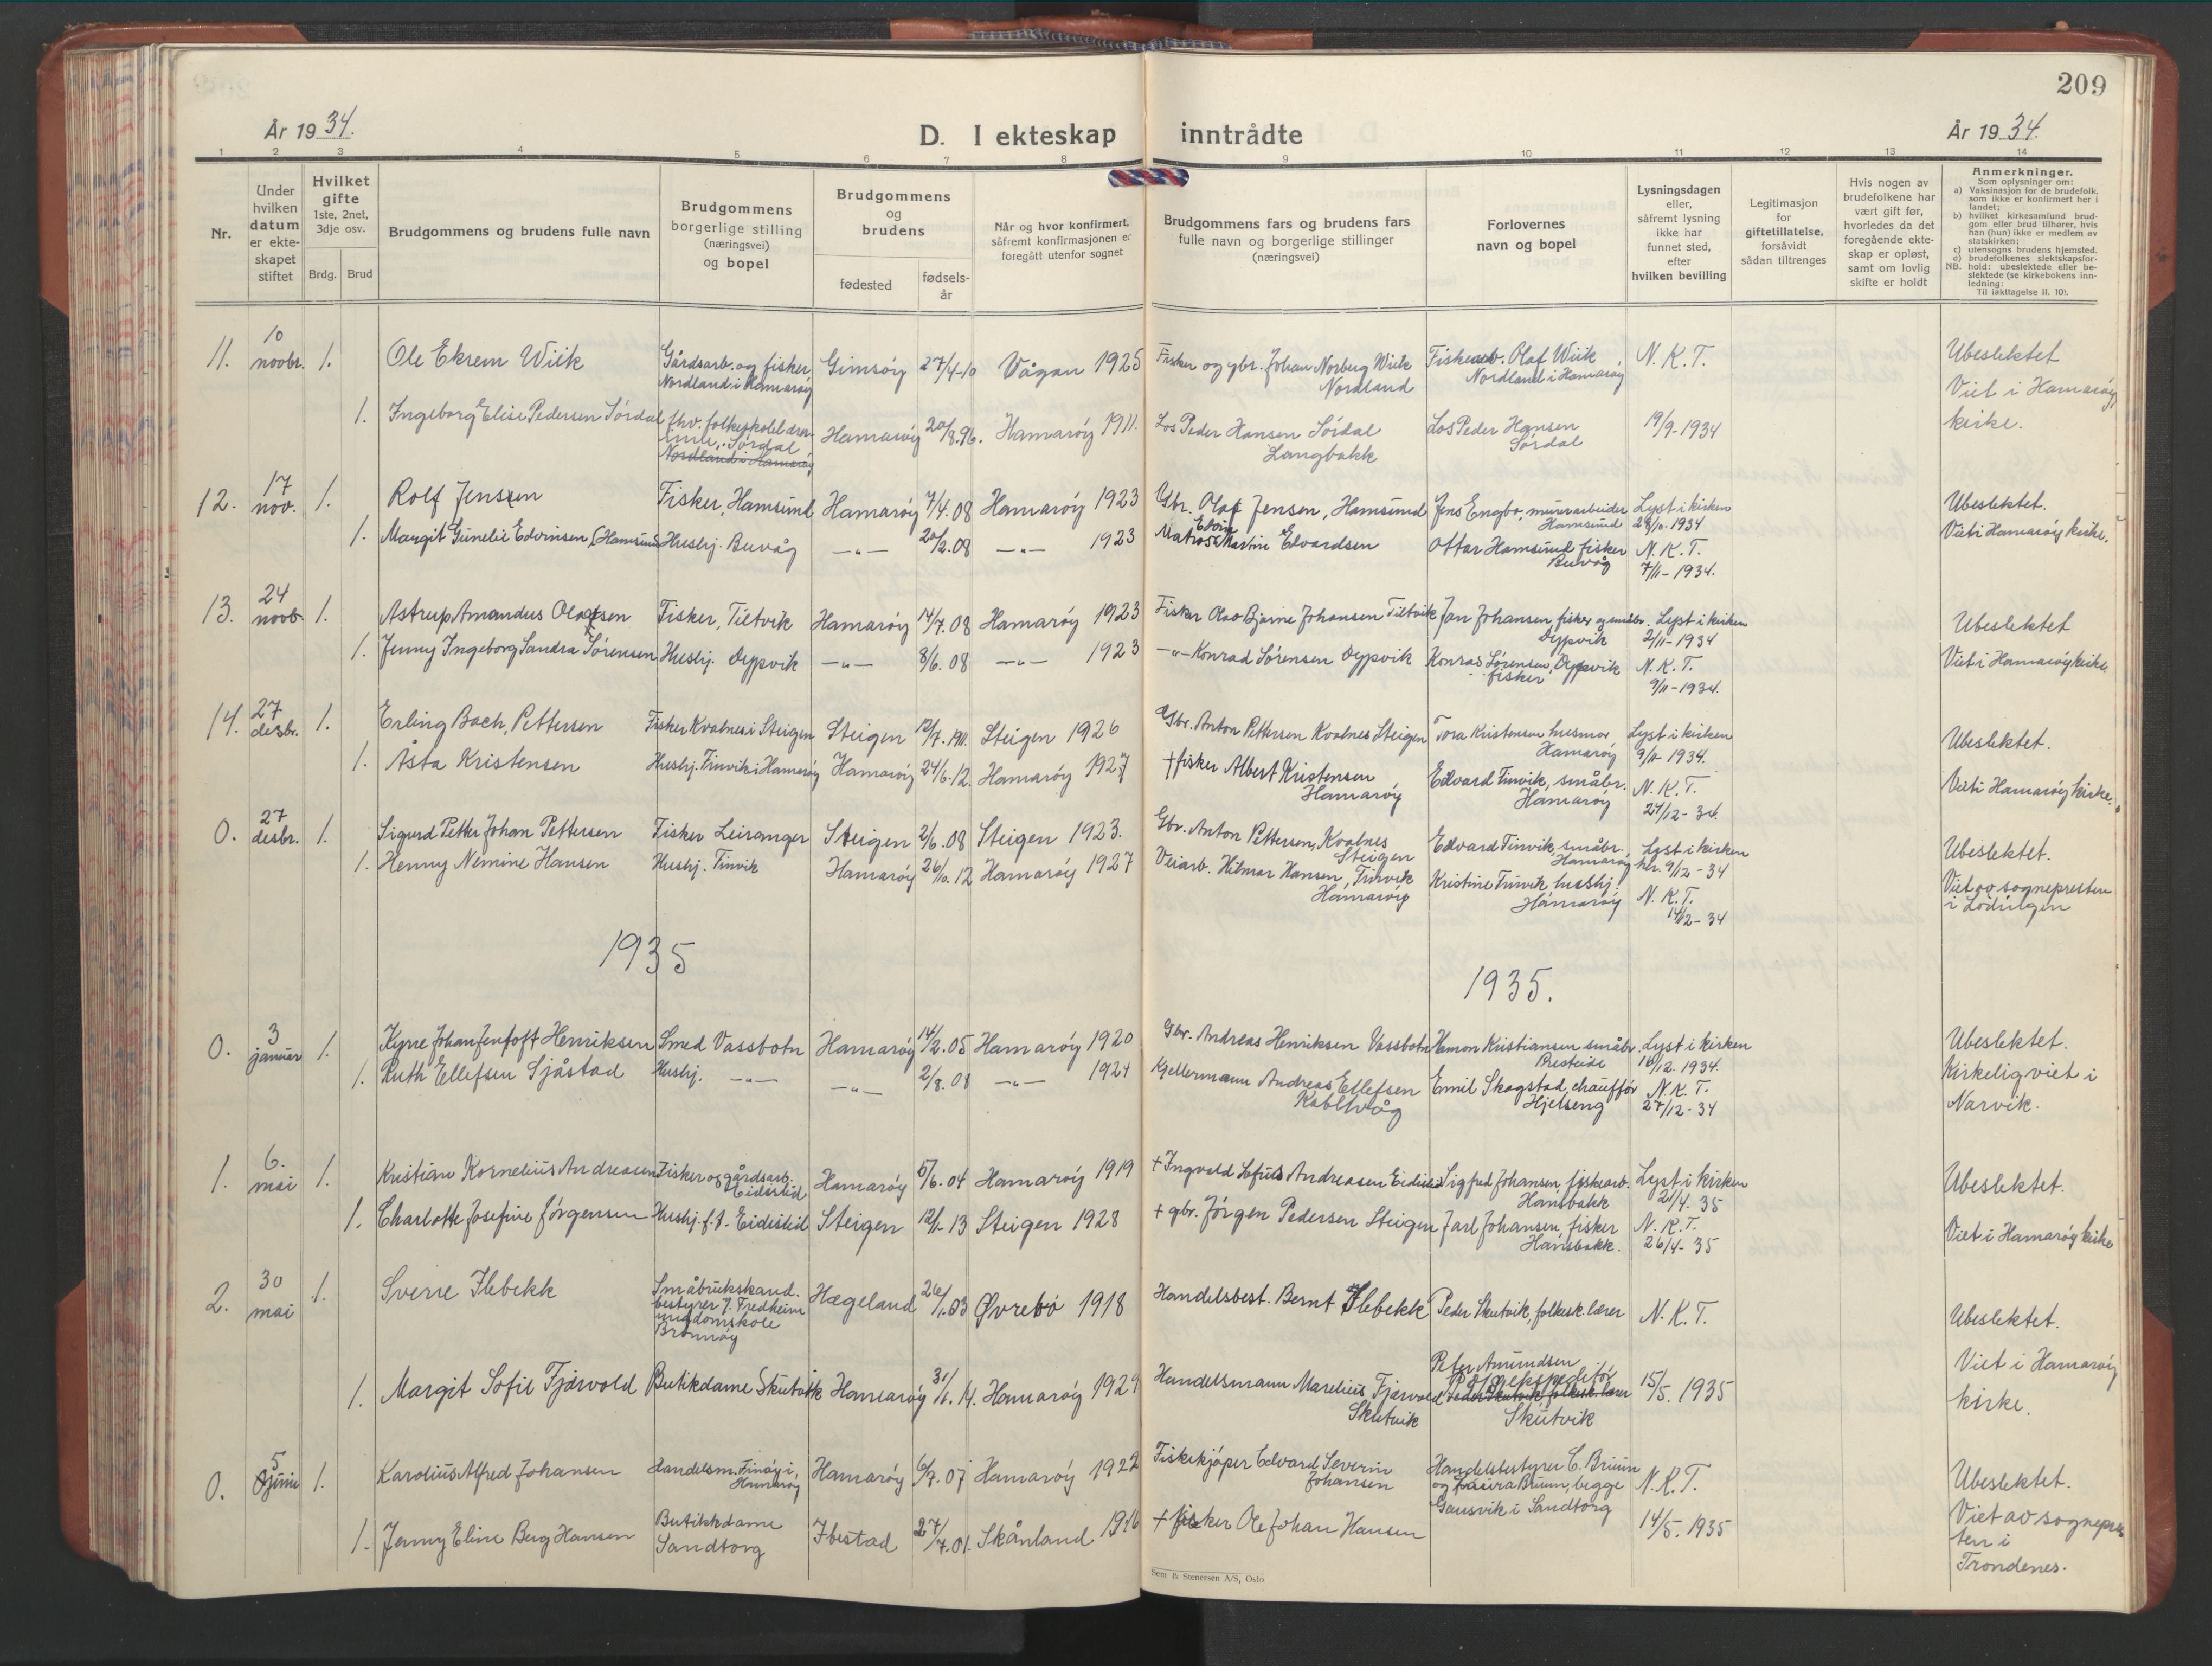 209
År 1934.
D. I ekteskap inntrådte
År 1934.
1 2 3 4 5 6 7 8 9 10 11 12 13 14
Nr.
Under hvilken datum er ekteskapet stiftet
Hvilket gifte
1ste, 2net, 3dje osv.
Brdg. Brud
Brudgommens og brudens fulle navn
Brudgommens borgerlige stilling (næringsvei) og bopel
Brudgommens og brudens
fødested
fødselsår
Når og hvor konfirmert, såfremt konfirmasjonen er foregått utenfor sognet
Brudgommens fars og brudens fars fulle navn og borgerlige stillinger (næringsvei)
Forlovernes navn og bopel
Lysningsdagen eller, såfremt lysning ikke har funnet sted, efter hvilken bevilling
Legitimasjon for giftetillatelse, forsåvidt sådan tiltrenges
Hvis nogen av brudefolkene har vært gift før, hvorledes da det foregående ekteskap er opløst, samt om lovlig skifte er holdt
Anmerkninger.
Som oplysninger om:
a) Vaksinasjon for de brudefolk, som ikke er konfirmert her i landet;
b) hvilket kirkesamfund brudgom eller brud tilhører, hvis han (hun) ikke er medlem av statskirken;
c) utensogns brudens hjemsted.
d) brudefolkenes slektskapsforhold: ubeslektede eller beslektede (se kirkebokens innledning;
NB.
Til iakttagelse II. 10).
11. 10 novbr. 1. Ole Ekrem Wiik Gårdsarb. og fisker Nordland i Hamarøy Gimsøy 27/4-10 Vågan 1925 Fisker og gbr. Johan Norberg Wiik Nordland Fiskearb. Olaf Wiik Nordland i Hamarøy N. K. T. Ubeslektet
Viet i Hamarøy kirke.
1. Ingeborg Elise Pedersen Sørdal fhv. folkeskolelærerinne, Sørdal Nordland i Hamarøy Hamarøy 20/8.96. Hamarøy 1911. Los Peder Hansen Sørdal Langbakk Los Peder Hansen Sørdal 19/9-1934
12. 17 nov. 1. Rolf Jensen Fisker, Hamsund Hamarøy 7/4.08 Hamarøy 1923 Gbr. Olaf Jensen, Hamsund Jens Engbo, murerarbeider Hamsund Lyst i kirken 28/10-1934 Ubeslektet.
1. Margit Gunelie Edvinsen (Hamsund Hushj. Buvåg —„— 20/2.08 —„— 1923 Matros Edvin Martin Edvardsen Ottar Hamsund fisker Buvåg N. K. T. 7/11-1934. Viet i Hamarøy kirke.
13. 24 novb. 1. Astrup Amandus Olafsen Fisker, Tiltvik Hamarøy 14/7.08 Hamarøy 1923 Fisker Olav Bjarne Johansen Tiltvik Jan Johansen, fisker og småbr. Dypvik Lyst i kirken 2/11-1934 Ubeslektet
1. Jenny Ingeborg Sandra Sørensen Hushj. Dypvik —„— 8/6.08 —„— 1923 —„— Konrad Sørensen Dypvik Konrad Sørensen, Dypvik fisker N. K. T. 9/11-1934. Viet i Hamarøy kirke.
14. 27 desbr. 1. Erling Bach, Pettersen Fisker Kvalnes i Steigen Steigen 12/7.1911. Steigen 1926 Gbr. Anton Pettersen Kvalnes Steigen Tora Kristensen husmor Hamarøy Lyst i kirken 9/11-1934. Ubeslektet.
1. Åsta Kristensen Hushj. Finvik i Hamarøy Hamarøy 24/6.12. Hamarøy 1927 † fisker Albert Kristensen Hamarøy Edvard Finvik, småbr. Hamarøy N. K. T. 24/12-34. Viet i Hamarøy kirke.
0. 27 desbr. 1. Sigurd Petter Johan Pettersen Fisker Leiranger Steigen 2/6.08 Steigen 1923. Gbr. Anton Pettersen, Kvalnes Steigen Edvard Finvik, småbr. Hamarøy Lyst i kirken her. 9/12-34 Ubeslektet.
1. Henny Nemine Hansen Hushj. Finvik Hamarøy 26/10.12 Hamarøy 1927 Veiarb. Hilmar Hansen, Finvik Hamarøy Kristine Finvik, hushj. Hamarøy N. K. T. 14/12-34 Viet av sognepresten i Lødingen
1935
1935.
0. 3 januar 1. Kyrre Johan Jentoft Henriksen Smed Vassbotn Hamarøy 14/2.05 Hamarøy 1920 Gbr. Andreas Henriksen Vassbotn Hemon Kristiansen småbr. Presteide Lyst i kirken 16/12.1934. Ubeslektet.
1. Ruth Ellefsen Sjåstad Hushj. —„— —„— 2/8.08 —„— 1924 Kjellermann Andreas Ellefsen Kabelvåg Emil Skogstad, chauffør Hjelseng N. K. T. 27/12-34 Kirkelig viet i Narvik.
1. 6. mai 1. Kristian Kornelius Andreasen Fisker og gårdsarb. Eidislid Hamarøy 5/6.04 Hamarøy 1919 † Ingvald Sofus Andreasen Sigfred Johansen fiskearb. Hansbakk Lyst i kirken 21/4.35 Ubeslektet.
1. Charlotte Josefine Jørgensen Hushj. f.t. Eidislid Steigen 12/1-13 Steigen 1928 † gbr. Jørgen Pedersen Steigen Jarl Johansen, fisker Hansbakk. N. K. T. 26/4-35 Viet i Hamarøy kirke
2. 30 mai 1. Sverre Ilebekk Småbrukskand. bestyrer v. Fredheim ungdomskole Brønnøy Hægeland 26/1.03 Øvrebø 1918 Handelsbest. Bernt Ilebekk Peder Skutvik, folkesk.lærer N. K. T. Ubeslektet.
1. Margit Sofie Fjærvold Butikdame Skutvik Hamarøy 31/1.14. Hamarøy 1929 Handelsmann Marelius Fjærvold Skutvik Peter Amundsen Peder Skutvik folkesk. lærer Skutvik 15/5.1935 Viet i Hamarøy kirke.
0. 5 juni 1. Karolius Alfred Johansen Handelsm. Finøy i Hamarøy Hamarøy 6/7.07 Hamarøy 1922 Fiskekjøper Edvard Severin Johansen Handelsbestyrer C. Bruun og Laura Bruun, begge Gausvik i Sandtorg N. K. T. Ubeslektet.
1. Jenny Eline Berg Hansen Butikkdame Sandtorg Ibestad 27/7.01. Skånland 1916 † fisker Ole Johan Hansen 14/5.1935 Viet av sognepresten i Trondenes.
Sem & Stenersen A/S, Oslo